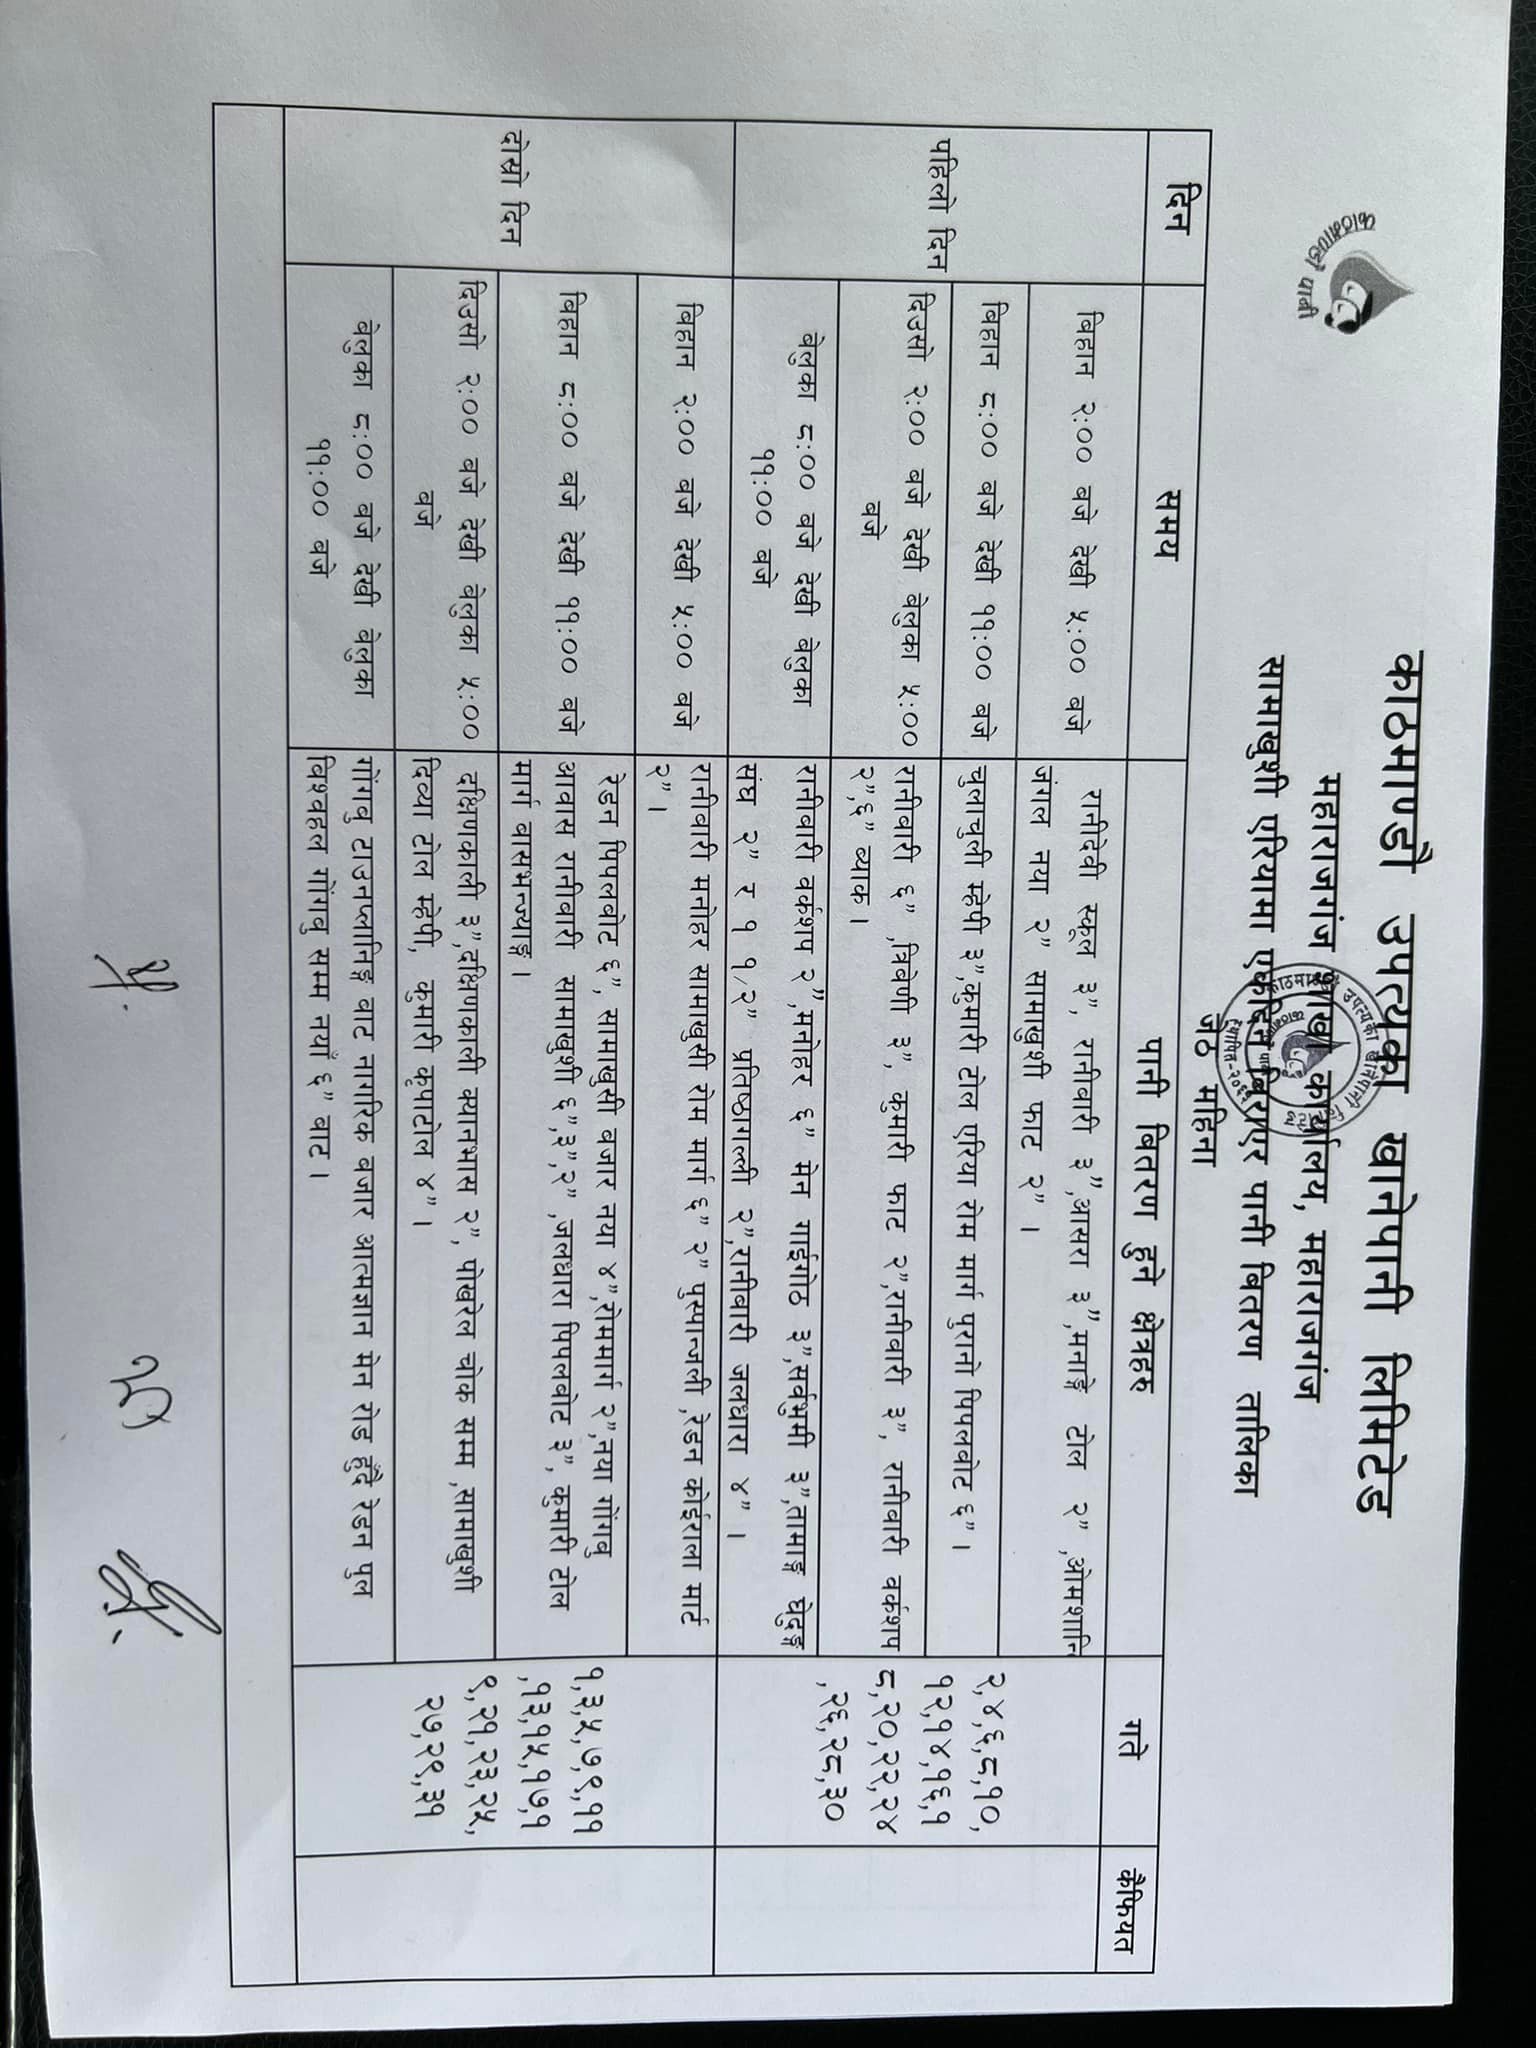 काठमाण्डौ पानी
काठमाण्डौ उपत्यका खानेपानी लिमिटेड
महाराजगंज शाखा कार्यालय, महाराजगंज
सामाखुशी एरियामा एकदिन बिराएर पानी बितरण तालिका
जेठ महिना
दिन
समय
पानी बितरण हुने क्षेत्रहरु
गते
कैफियत
पहिलो दिन
बिहान २:०० बजे देखी ५:०० बजे
रानीदेवी स्कूल ३", रानीवारी ३",आसरा ३",मनाङ्गे टोल २" ,ओमशान्ति
जंगल नया २" सामाखुशी फाट २" ।
बिहान ८:०० बजे देखी ११:०० बजे
चुलाचुली म्हेपी ३",कुमारी टोल एरिया रोम मार्ग पुरानो पिपलवोट ६" ।
दिउसो २:०० बजे देखी बेलुका ५:००
बजे
रानीवारी ६" ,त्रिवेणी ३", कुमारी फाट २",रानीवारी ३", रानीवारी वर्कशप
२",६" ब्याक ।
बेलुका ८:०० बजे देखी बेलुका
११:०० बजे
रानीवारी वर्कशप २",मनोहर ६" मेन गाईगोठ ३",सर्वभुमी ३",तामाङ्ग घेदुङ्ग
संघ २" र १ १/२" प्रतिष्ठागल्ली २",रानीवारी जलधारा ४" ।
२,४,६,८,१०,
१२,१४,१६,१
८,२०,२२,२४
,२६,२८,३०
दोस्रो दिन
बिहान २:०० बजे देखी ५:०० बजे
रानीवारी मनोहर सामाखुसी रोम मार्ग ६" २" पुस्पान्जली ,रेडन कोईराला मार्ट
२" ।
बिहान ८:०० बजे देखी ११:०० बजे
रेडन पिपलवोट ६", सामाखुसी बजार नया ४",रोममार्ग २",नया गोंगबु
आवास रानीवारी सामाखुशी ६",३",२" ,जलधारा पिपलवोट ३", कुमारी टोल
मार्ग बासभन्ज्याङ्ग ।
दिउसो २:०० बजे देखी बेलुका ५:००
बजे
दक्षिणकाली ३",दक्षिणकाली क्यानभास २", पोखरेल चोक सम्म ,सामाखुशी
दिव्या टोल म्हेपी, कुमारी कृपाटोल ४" ।
बेलुका ८:०० बजे देखी बेलुका
११:०० बजे
गोंगबु टाउनप्लानिङ्ग बाट नागरिक बजार आत्मज्ञान मेन रोड हुँदै रेडन पुल
विश्वहल गोंगबु सम्म नयाँ ६" बाट ।
१,३,५,७,९,११
,१३,१५,१७,१
९,२१,२३,२५,
२७,२९,३१